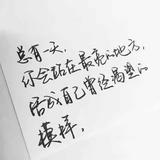 总有一天,
你会站在最亮的地方,
活成自己曾经渴望的
模样,